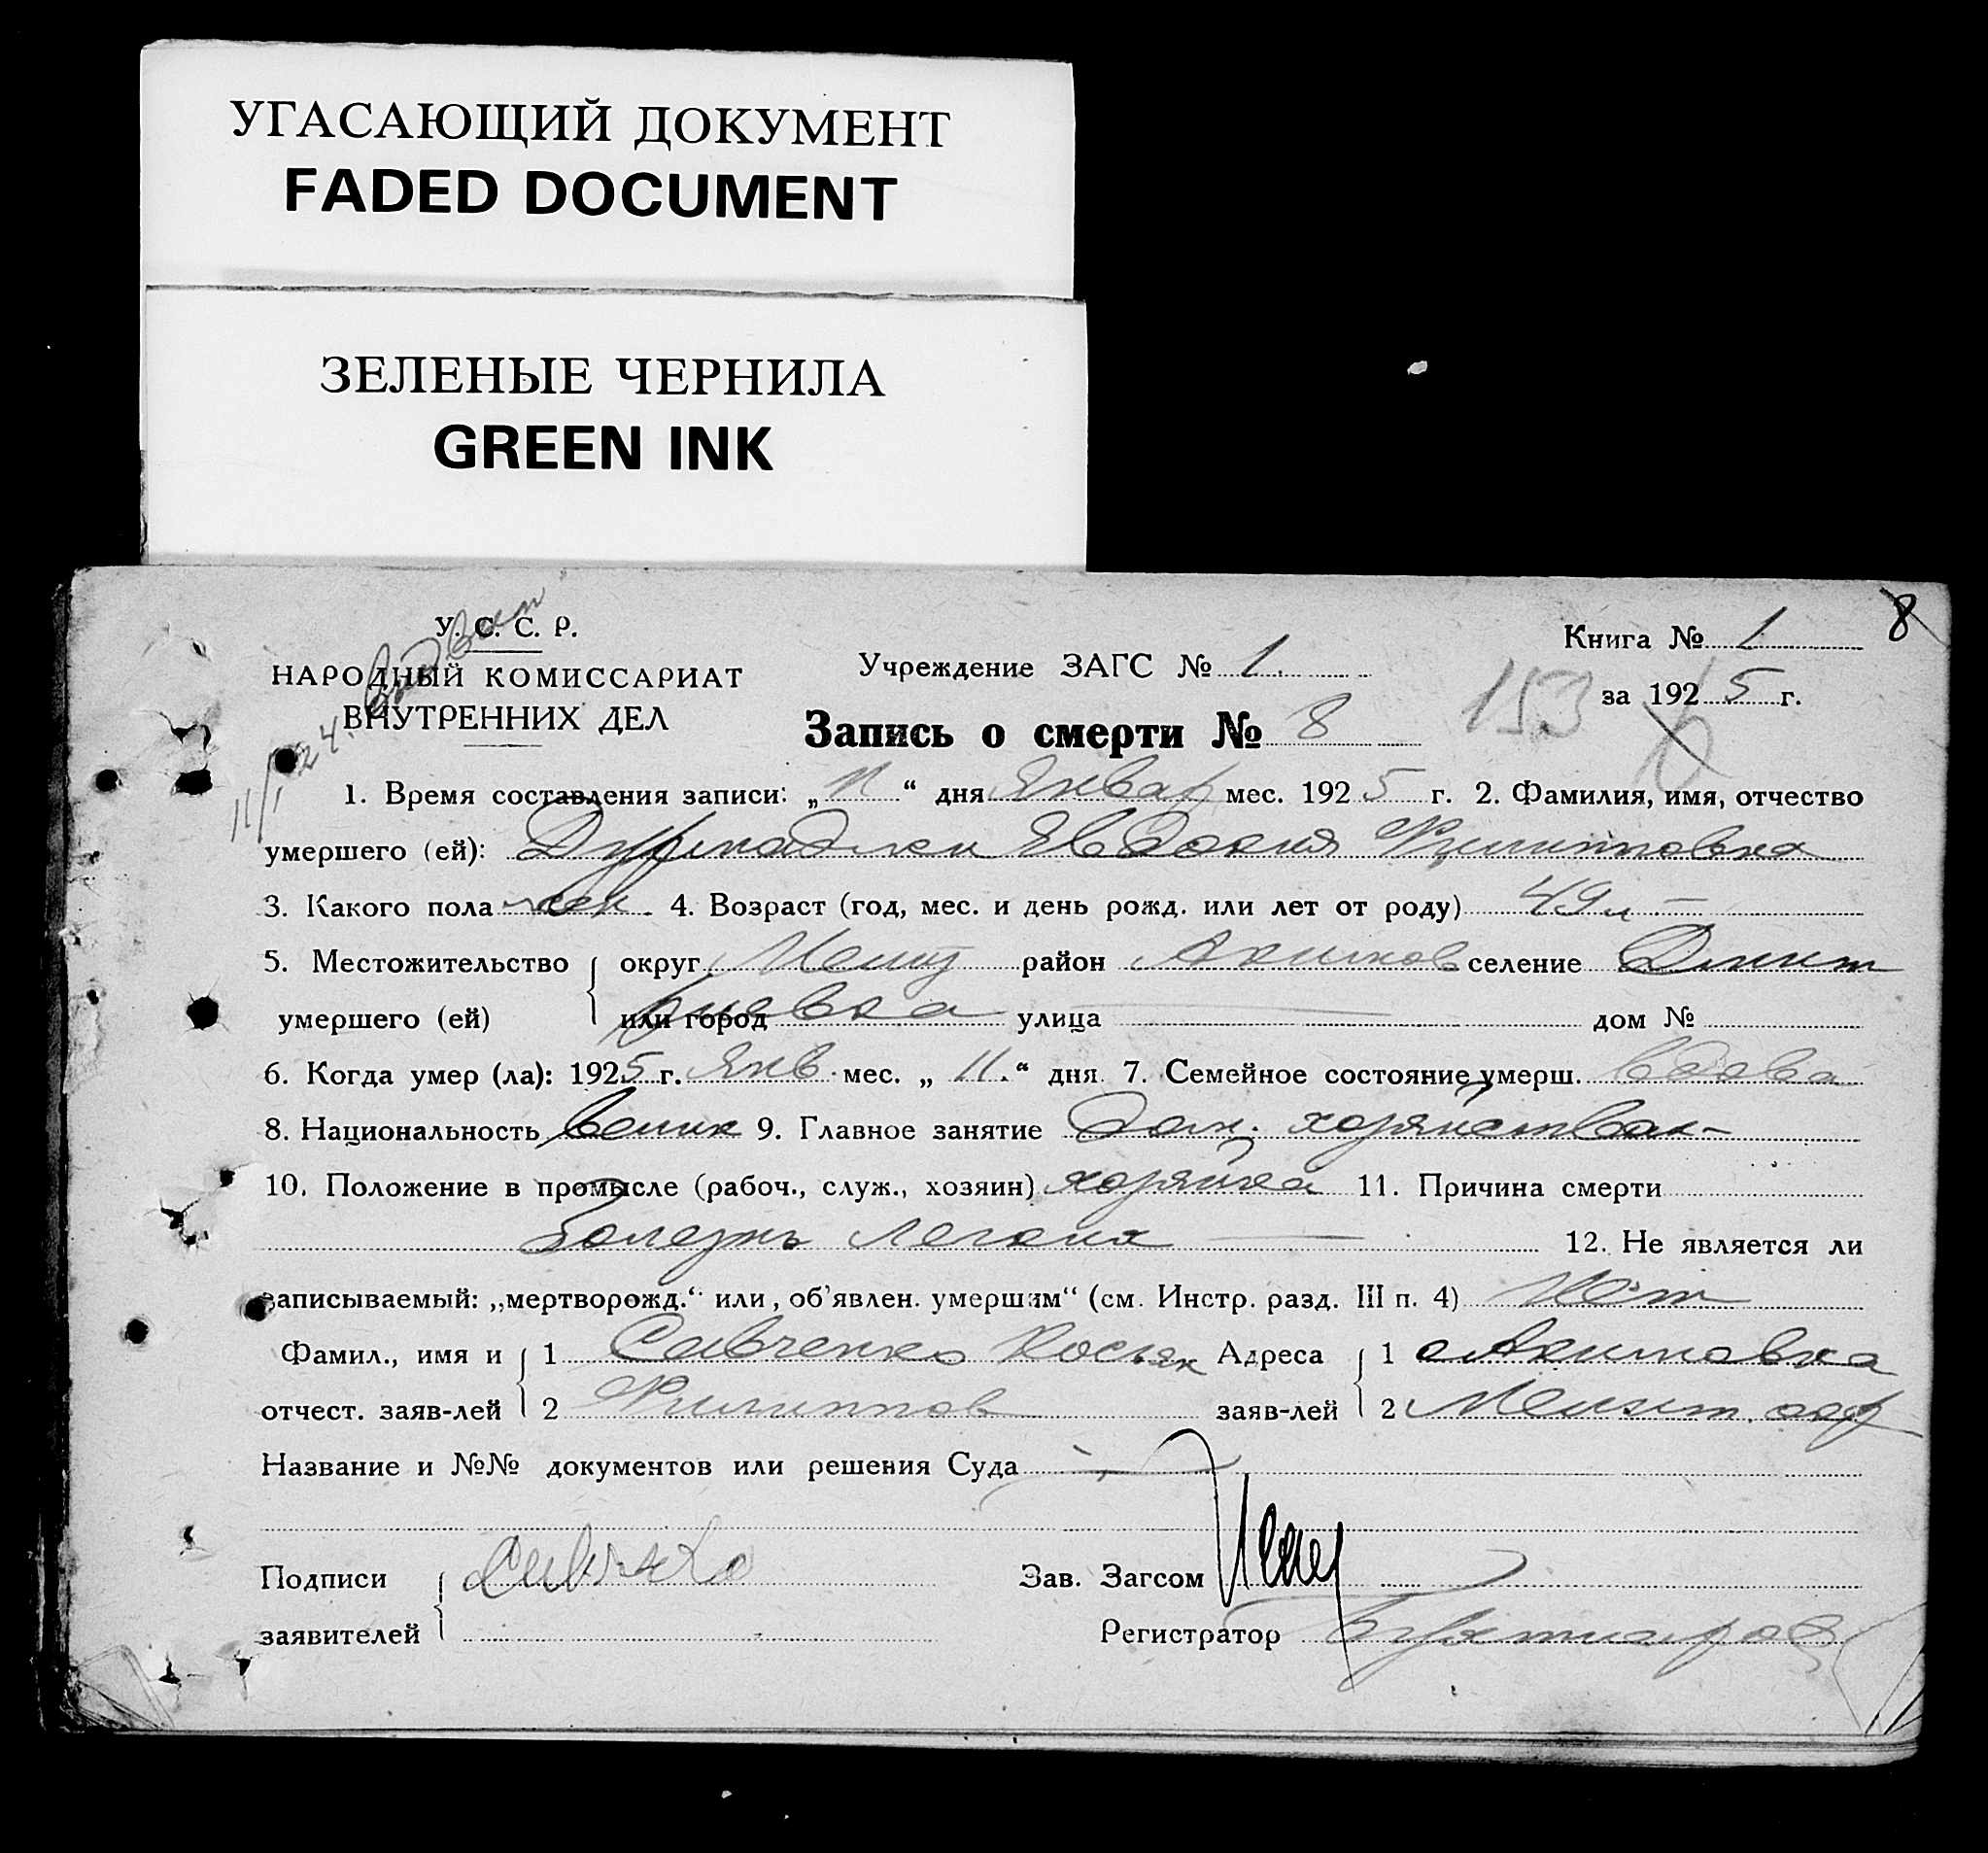 УГАСАЮЩИЙ ДОКУМЕНТ
FADED DOCUMENT
ЗЕЛЕНЫЕ ЧЕРНИЛА
GREEN INK
8
У. С. С. Р.
НАРОДНЫЙ КОМИССАРИАТ
ВНУТРЕННИХ ДЕЛ
Учреждение ЗАГС № 1.
Книга № 1
за 1925 г.
153
Запись о смерти № 8
1. Время составления записи: „11“ дня Январ мес. 1925 г. 2. Фамилия, имя, отчество
умершего (ей): Явдокия Филипповна
3. Какого пола жен. 4. Возраст (год, мес. и день рожд. или лет от роду) 49 л —
5. Местожительство округ Мелит район Акимов селение Дмит
умершего (ей) или город риевка улица — дом №
6. Когда умер (ла): 1925 г. Янв. мес. „11.“ дня 7. Семейное состояние умерш. вдова
8. Национальность 9. Главное занятие Дом. хозяйством-
10. Положение в промысле (рабоч., служ., хозяин) хозяйка 11. Причина смерти
Болезнь легких — 12. Не является ли
записываемый: „мертворожд.“ или „об'явлен. умершим“ (см. Инстр. разд. III п. 4) Нет
Фамил., имя и 1 Савченко Адреса 1 с Акимовка
отчест. заяв-лей 2 Филиппов заяв-лей 2 Мелит. окр
Название и №№ документов или решения Суда —
Подписи
Зав. Загсом
заявителей
Регистратор